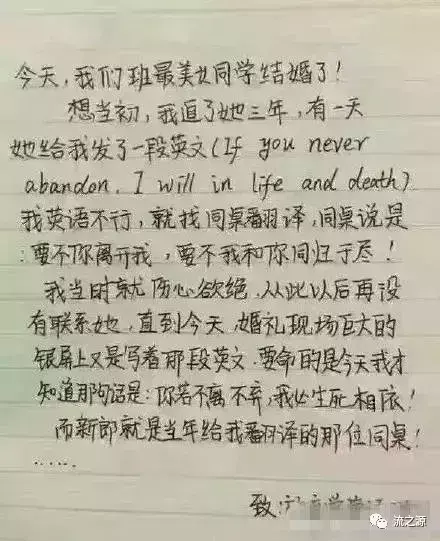 今天,我们班最美女同学结婚了!
想当初,我追了她三年,有一天
她给我发了一段英文(If you never
abandon, I will in life and death)
我英语不行,就找同桌翻译,同桌说是
:要不你离开我,要不我和你同归于尽!
我当时就伤心欲绝,从此以后再没
有联系她,直到今天,婚礼现场巨大的
银屏上又是写着那段英文.要命的是今天我才
知道那句话是:你若不离不弃,我必生死相依!
而新郎就是当年给我翻译的那位同桌!
......
致:
流之源